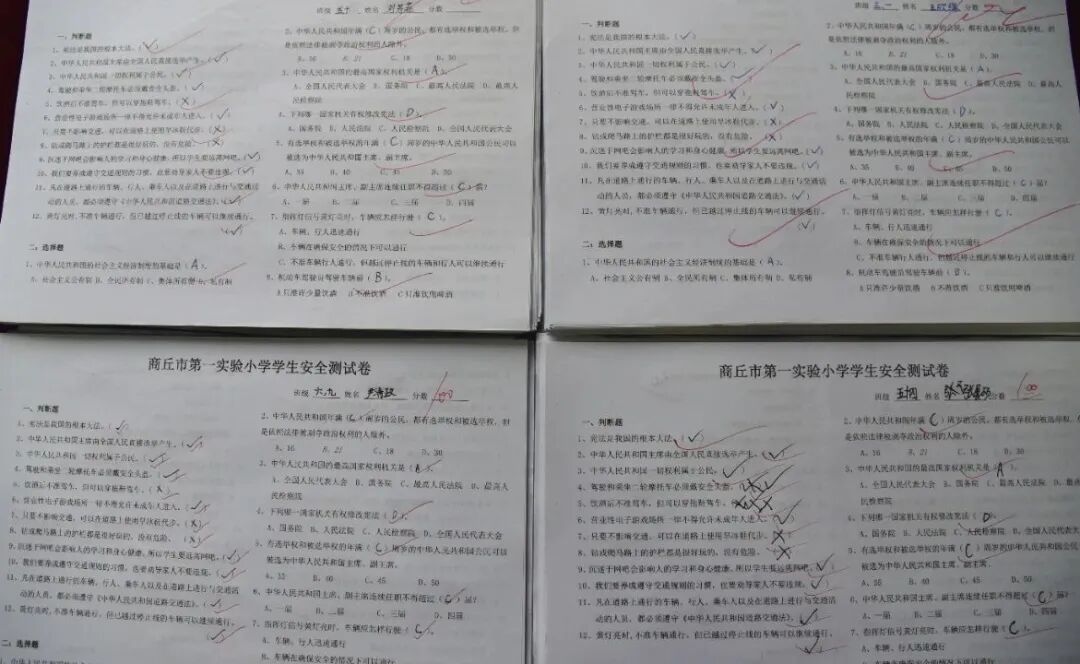 班级 五十 姓名 分数
一、判断题
1、宪法是我国的根本大法。(√)
2、中华人民共和国主席由全国人民直接选举产生。(√)
3、中华人民共和国一切权利属于公民。(√)
4、驾驶和乘坐二轮摩托车必须戴安全头盔。(√)
5、饮酒后不准驾车,但可以穿拖鞋驾车。(X)
6、营业性电子游戏场所一律不得允许未成年人进入。(√)
7、只要不影响交通,可以在道路上使用旱冰鞋代步。(X)
8、钻或爬马路上的护栏都是很好玩的,没有危险。(X)
9、沉迷于网吧会影响人的学习和身心健康,所以学生要远离网吧。(√)
10、我们要养成遵守交通规则的习惯,也要劝导家人不要违规。(√)
11、凡在道路上通行的车辆、行人、乘车人以及在道路上进行与交通活
动的人员,都必须遵守《中华人民共和国道路交通法》。(√)
12、黄灯亮时,不准车辆通行,但已越过停止线的车辆可以继续通行。
(√)
二、选择题
1、中华人民共和国的社会主义经济制度的基础是(A)。
A、社会主义公有制 B、全民所有制 C、集体所有制 D、私有制
2、中华人民共和国年满(C)周岁的公民,都有选举权和被选举权,但
是依照法律被剥夺政治权利的人除外。
A、16 B、21 C、18 D、30
3、中华人民共和国的最高国家权利机关是(A)。
A、全国人民代表大会 B、国务院 C、最高人民法院 D、最高人
民检察院
4、下列哪一国家机关有权修改宪法(D)。
A、国务院 B、人民法院 C、人民检察院 D、全国人民代表大会
5、有选举权和被选举权的年满(C)周岁的中华人民共和国公民可以
被选为中华人民共和国主席、副主席。
A、35 B、40 C、45 D、50
6、中华人民共和国主席、副主席连续任职不得超过(C)届?
A、一届 B、二届 C、三届 D、四届
7、指挥灯信号黄灯亮时,车辆应怎样行驶(C)。
A、车辆、行人迅速通行
B、车辆在确保安全的情况下可以通行
C、不准车辆行人通行,但越过停止线的车辆和行人可以继续通行
8、机动车驾驶员驾驶车辆前(B)。
A只准许少量饮酒 B不准饮酒 C只准饮用啤酒
班级 三一 姓名 分数
1、宪法是我国的根本大法。(√)
2、中华人民共和国主席由全国人民直接选举产生。(√)
3、中华人民共和国一切权利属于公民。(√)
4、驾驶和乘坐二轮摩托车必须戴安全头盔。(√)
5、饮酒后不准驾车,但可以穿拖鞋驾车。(X)
6、营业性电子游戏场所一律不得允许未成年人进入。(√)
7、只要不影响交通,可以在道路上使用旱冰鞋代步。(X)
8、钻或爬马路上的护栏都是很好玩的,没有危险。(X)
9、沉迷于网吧会影响人的学习和身心健康,所以学生要远离网吧。(√)
10、我们要养成遵守交通规则的习惯,也要劝导家人不要违规。(√)
11、凡在道路上通行的车辆、行人、乘车人以及在道路上进行与交通活
动的人员,都必须遵守《中华人民共和国道路交通法》。(√)
12、黄灯亮时,不准车辆通行,但已越过停止线的车辆可以继续通行。
(√)
二、选择题
1、中华人民共和国的社会主义经济制度的基础是(A)。
A、社会主义公有制 B、全民所有制 C、集体所有制 D、私有制
2、中华人民共和国年满(C)周岁的公民,都有选举权和被选举权,但
是依照法律被剥夺政治权利的人除外。
A、16 B、21 C、18 D、30
3、中华人民共和国的最高国家权利机关是(A)。
A、全国人民代表大会 B、国务院 C、最高人民法院 D、最高人
民检察院
4、下列哪一国家机关有权修改宪法(D)。
A、国务院 B、人民法院 C、人民检察院 D、全国人民代表大会
5、有选举权和被选举权的年满(C)周岁的中华人民共和国公民可以
被选为中华人民共和国主席、副主席。
A、35 B、40 C、45 D、50
6、中华人民共和国主席、副主席连续任职不得超过(C)届?
A、一届 B、二届 C、三届 D、四届
7、指挥灯信号黄灯亮时,车辆应怎样行驶(C)。
A、车辆、行人迅速通行
B、车辆在确保安全的情况下可以通行
C、不准车辆行人通行,但越过停止线的车辆和行人可以继续通行
8、机动车驾驶员驾驶车辆前(B)。
A只准许少量饮酒 B不准饮酒 C只准饮用啤酒
商丘市第一实验小学学生安全测试卷
班级 六九 姓名 分数 100
一、判断题
1、宪法是我国的根本大法。(√)
2、中华人民共和国主席由全国人民直接选举产生。(√)
3、中华人民共和国一切权利属于公民。(√)
4、驾驶和乘坐二轮摩托车必须戴安全头盔。(√)
5、饮酒后不准驾车,但可以穿拖鞋驾车。(X)
6、营业性电子游戏场所一律不得允许未成年人进入。(√)
7、只要不影响交通,可以在道路上使用旱冰鞋代步。(X)
8、钻或爬马路上的护栏都是很好玩的,没有危险。(X)
9、沉迷于网吧会影响人的学习和身心健康,所以学生要远离网吧。(√)
10、我们要养成遵守交通规则的习惯,也要劝导家人不要违规。(√)
11、凡在道路上通行的车辆、行人、乘车人以及在道路上进行与交通活
动的人员,都必须遵守《中华人民共和国道路交通法》。(√)
12、黄灯亮时,不准车辆通行,但已越过停止线的车辆可以继续通行。
(√)
二、选择题
2、中华人民共和国年满(C)周岁的公民,都有选举权和被选举权,但
是依照法律被剥夺政治权利的人除外。
A、16 B、21 C、18 D、30
3、中华人民共和国的最高国家权利机关是(A)。
A、全国人民代表大会 B、国务院 C、最高人民法院 D、最高人
民检察院
4、下列哪一国家机关有权修改宪法(D)。
A、国务院 B、人民法院 C、人民检察院 D、全国人民代表大会
5、有选举权和被选举权的年满(C)周岁的中华人民共和国公民可以
被选为中华人民共和国主席、副主席。
A、35 B、40 C、45 D、50
6、中华人民共和国主席、副主席连续任职不得超过(C)届?
A、一届 B、二届 C、三届 D、四届
7、指挥灯信号黄灯亮时,车辆应怎样行驶(C)。
A、车辆、行人迅速通行
B、车辆在确保安全的情况下可以通行
商丘市第一实验小学学生安全测试卷
班级 五四 姓名 分数 100
一、判断题
1、宪法是我国的根本大法。(√)
2、中华人民共和国主席由全国人民直接选举产生。(√)
3、中华人民共和国一切权利属于公民。(√)
4、驾驶和乘坐二轮摩托车必须戴安全头盔。
5、饮酒后不准驾车,但可以穿拖鞋驾车。
6、营业性电子游戏场所一律不得允许未成年人进入。(√)
7、只要不影响交通,可以在道路上使用旱冰鞋代步。(X)
8、钻或爬马路上的护栏都是很好玩的,没有危险。(X)
9、沉迷于网吧会影响人的学习和身心健康,所以学生要远离网吧。(√)
10、我们要养成遵守交通规则的习惯,也要劝导家人不要违规。(√)
11、凡在道路上通行的车辆、行人、乘车人以及在道路上进行与交通活
动的人员,都必须遵守《中华人民共和国道路交通法》。(√)
12、黄灯亮时,不准车辆通行,但已越过停止线的车辆可以继续通行。
(√)
二、选择题
2、中华人民共和国年满(C)周岁的公民,都有选举权和被选举权,
是依照法律被剥夺政治权利的人除外。
A、16 B、21 C、18 D、30
3、中华人民共和国的最高国家权利机关是(A)
A、全国人民代表大会 B、国务院 C、最高人民法院 D、最高
民检察院
4、下列哪一国家机关有权修改宪法(D)。
A、国务院 B、人民法院 C、人民检察院 D、全国人民代表大
5、有选举权和被选举权的年满(C)周岁的中华人民共和国公民可
被选为中华人民共和国主席、副主席。
A、35 B、40 C、45 D、50
6、中华人民共和国主席、副主席连续任职不得超过(C)届?
A、一届 B、二届 C、三届 D、四届
7、指挥灯信号黄灯亮时,车辆应怎样行驶(C)。
A、车辆、行人迅速通行
B、车辆在确保安全的情况下可以通行